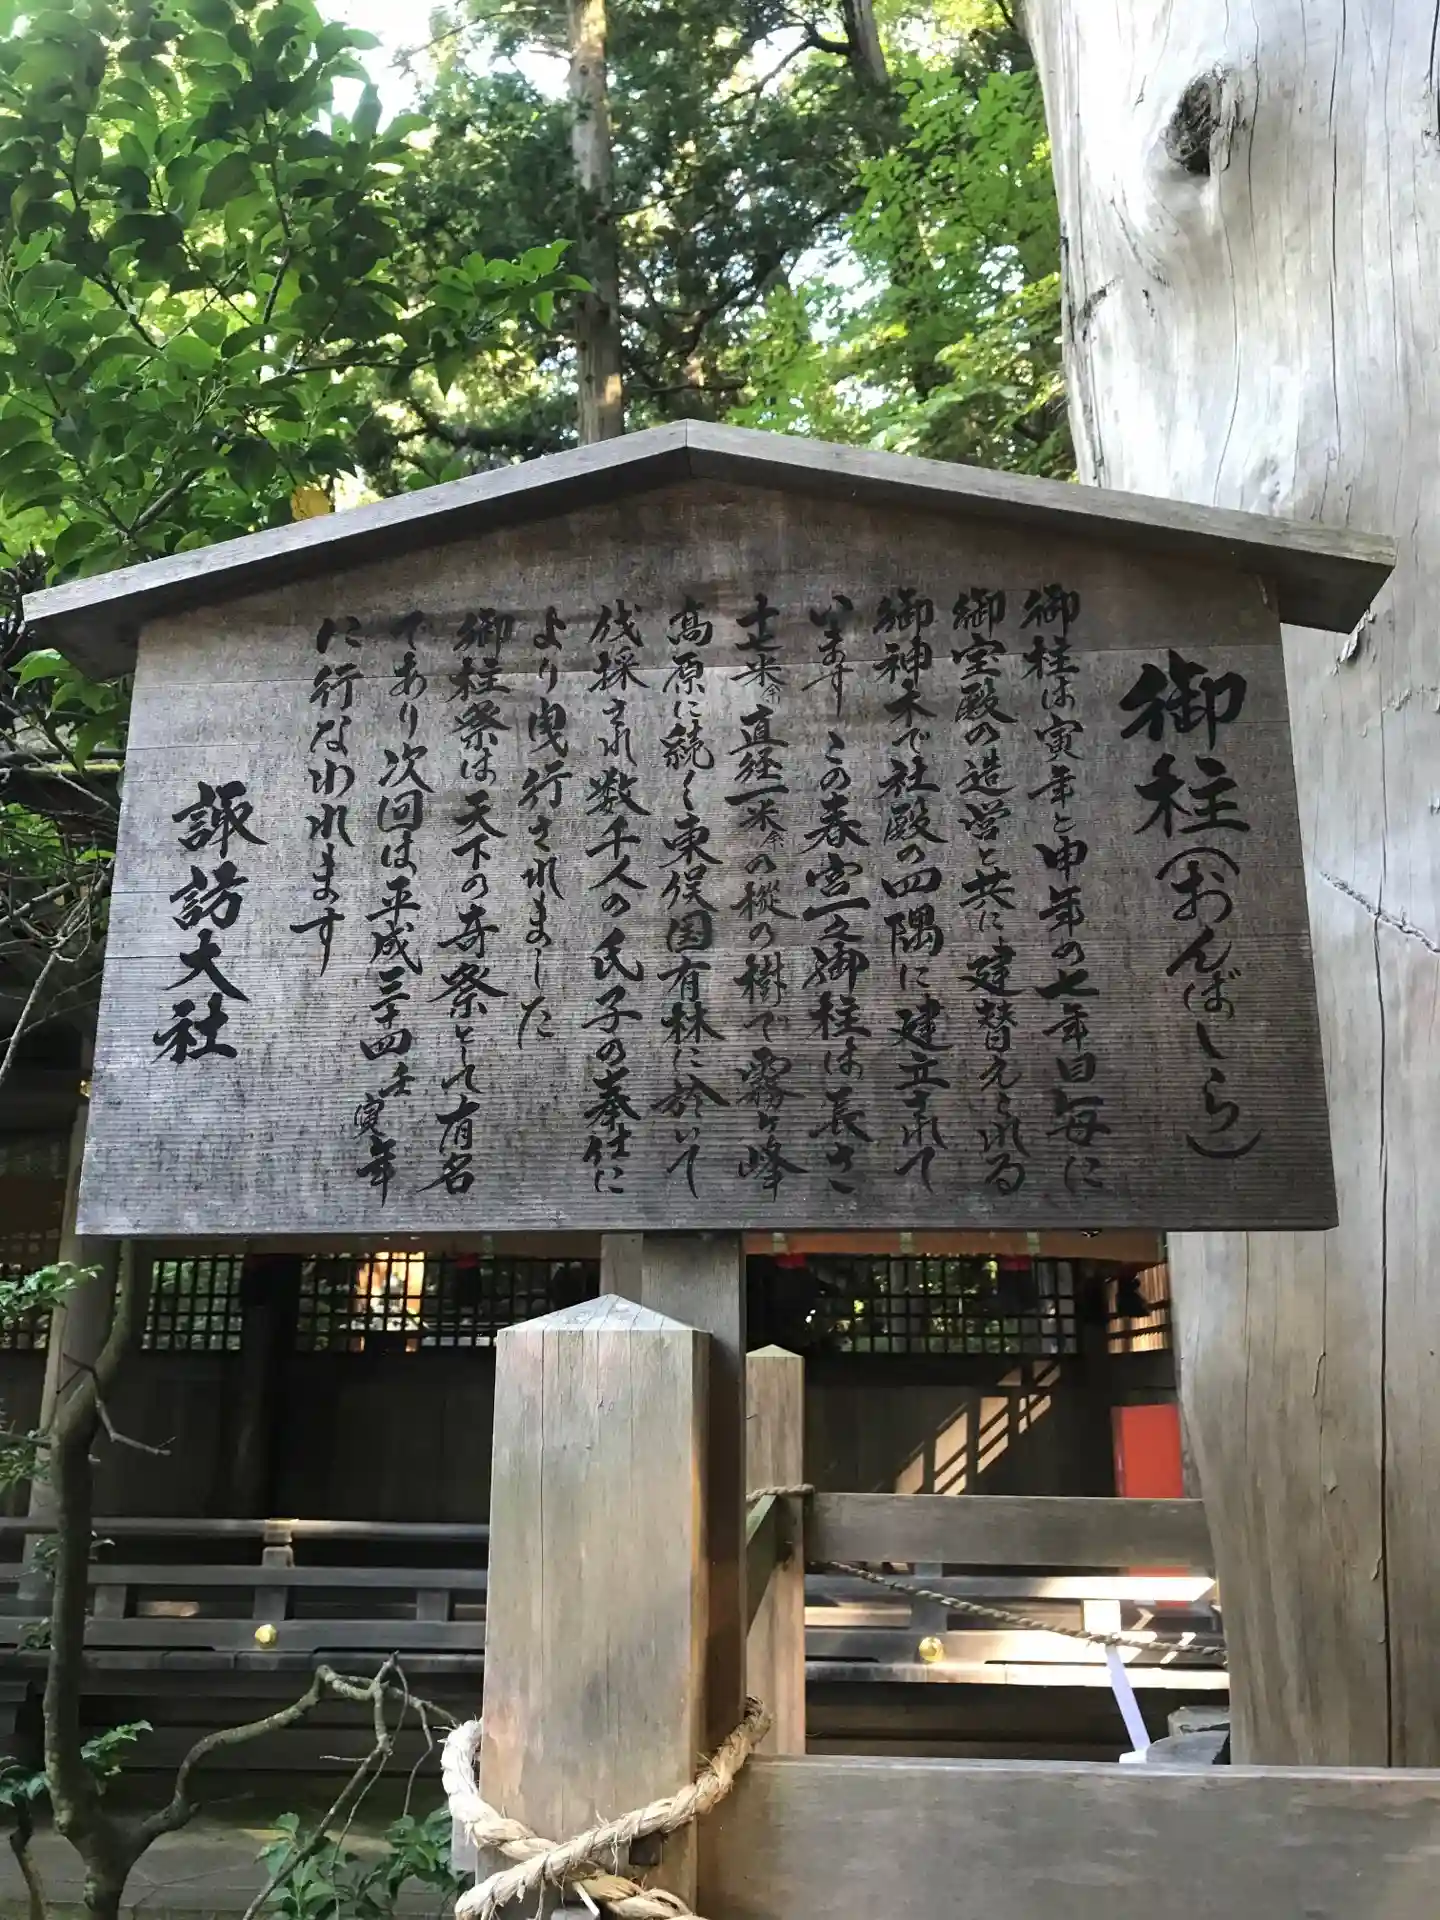 御柱(おんばしら)
御柱は寅年と申年の七年目毎に
御宝殿の造営と共に建替えられる
御神木で社殿の四隅に建立されて
います この春宮一之御柱は長さ
十七米余直径一米余の樅の樹で霧ヶ峰
高原に続く東俣国有林に於いて
伐採され数千人の氏子の奉仕に
より曳行されました
御柱祭は天下の奇祭として有名
であり次回は平成三十四壬寅年
に行なわれます
諏訪大社